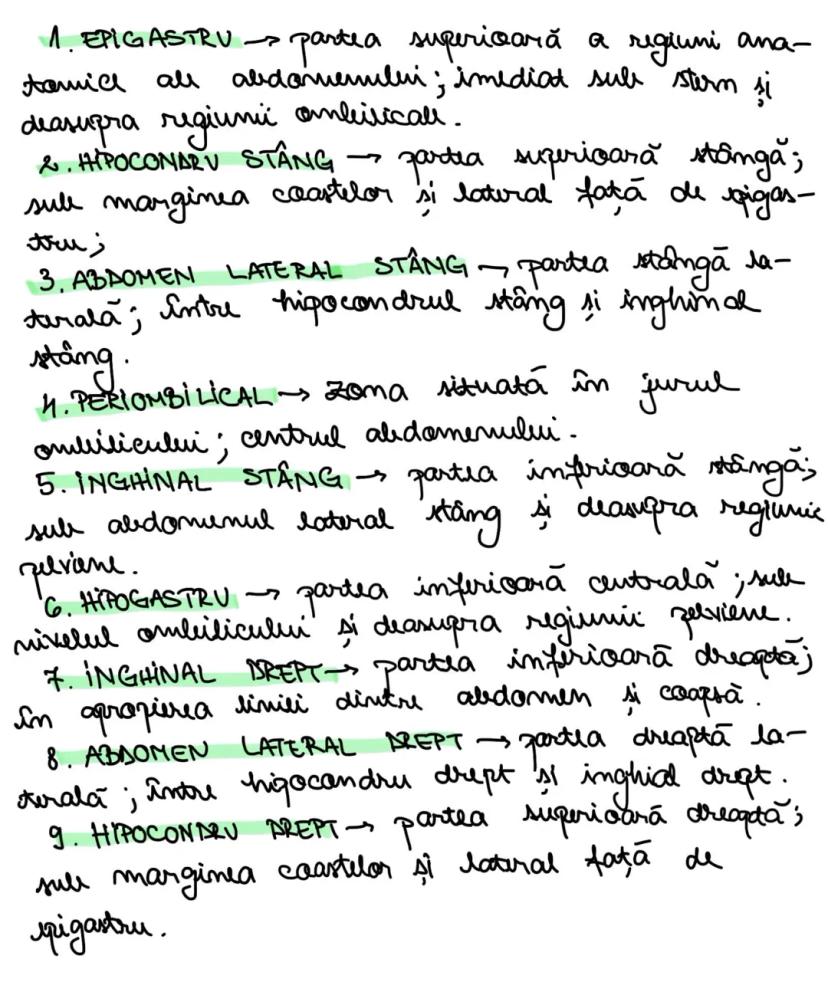 1. EPIGASTRU → partea superioară a regiuni ana-
tomice ale abdomenului; imediat sub stern și
deasupra regiunii ombilicale.
2. HIPOCONDRU STÂNG → partea superioară stângă;
sub marginea coastelor și lateral față de epigas-
tru;
3. ABDOMEN LATERAL STÂNG → partea stângă la-
terală; între hipocondrul stâng și inghinal
stâng.
4. PERIOMBILICAL → zona situată în jurul
ombilicului; centrul abdomenului.
5. INGHINAL STÂNG → partea inferioară stângă;
sub abdomenul lateral stâng și deasupra regiunii
pelviene.
6. HIPOGASTRU → partea inferioară centrală; sub
nivelul ombilicului și deasupra regiunii pelviene.
7. INGHINAL DREPT → partea inferioară dreaptă;
în apropierea liniei dintre abdomen și coapsă.
8. ABDOMEN LATERAL DREPT → partea dreaptă la-
terală; între hipocondru drept și inghial drept.
9. HIPOCONDRU DREPT → partea superioară dreaptă;
sub marginea coastelor și lateral față de
epigastru.